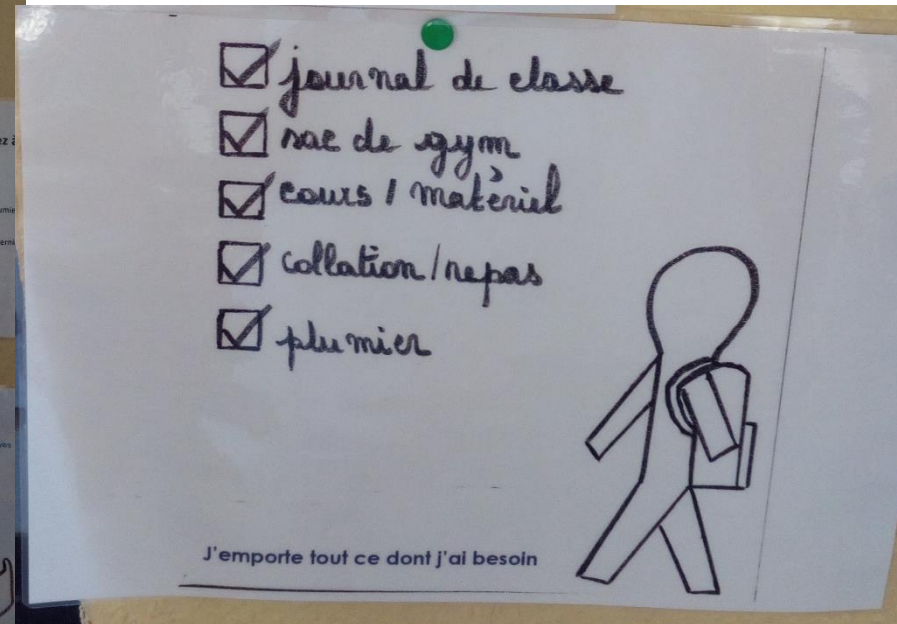 journal de classe
sac de gym
cours / matériel
collation/repas
plumier
J'emporte tout ce dont j'ai besoin